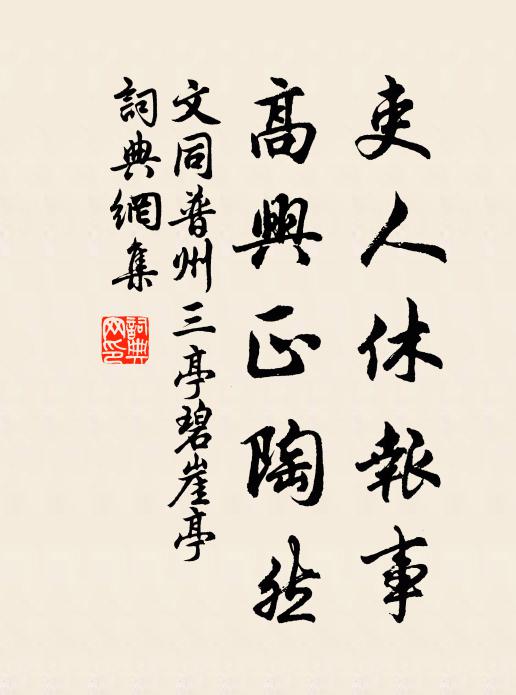 吏人休報事
高興正陶然
文同普州三亭碧崖亭
詞典網集
詞典
网印